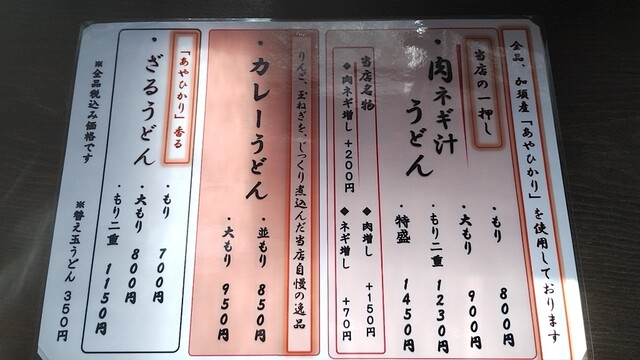 全品、加須産「あやひかり」を使用しております
当店の一押し
・肉ネギ汁
うどん
・もり 800円
・大もり 900円
・もり二重 1230円
・特盛 1450円
当店名物
◆肉ネギ増し +200円
◆肉増し +150円
◆ネギ増し +70円
りんご、玉ねぎを、じっくり煮込んだ当店自慢の逸品
・カレーうどん
・並もり 850円
・大もり 950円
「あやひかり」香る
・ざるうどん
・もり 700円
・大もり 800円
・もり二重 1150円
※全品税込み価格です
※替え玉うどん 350円